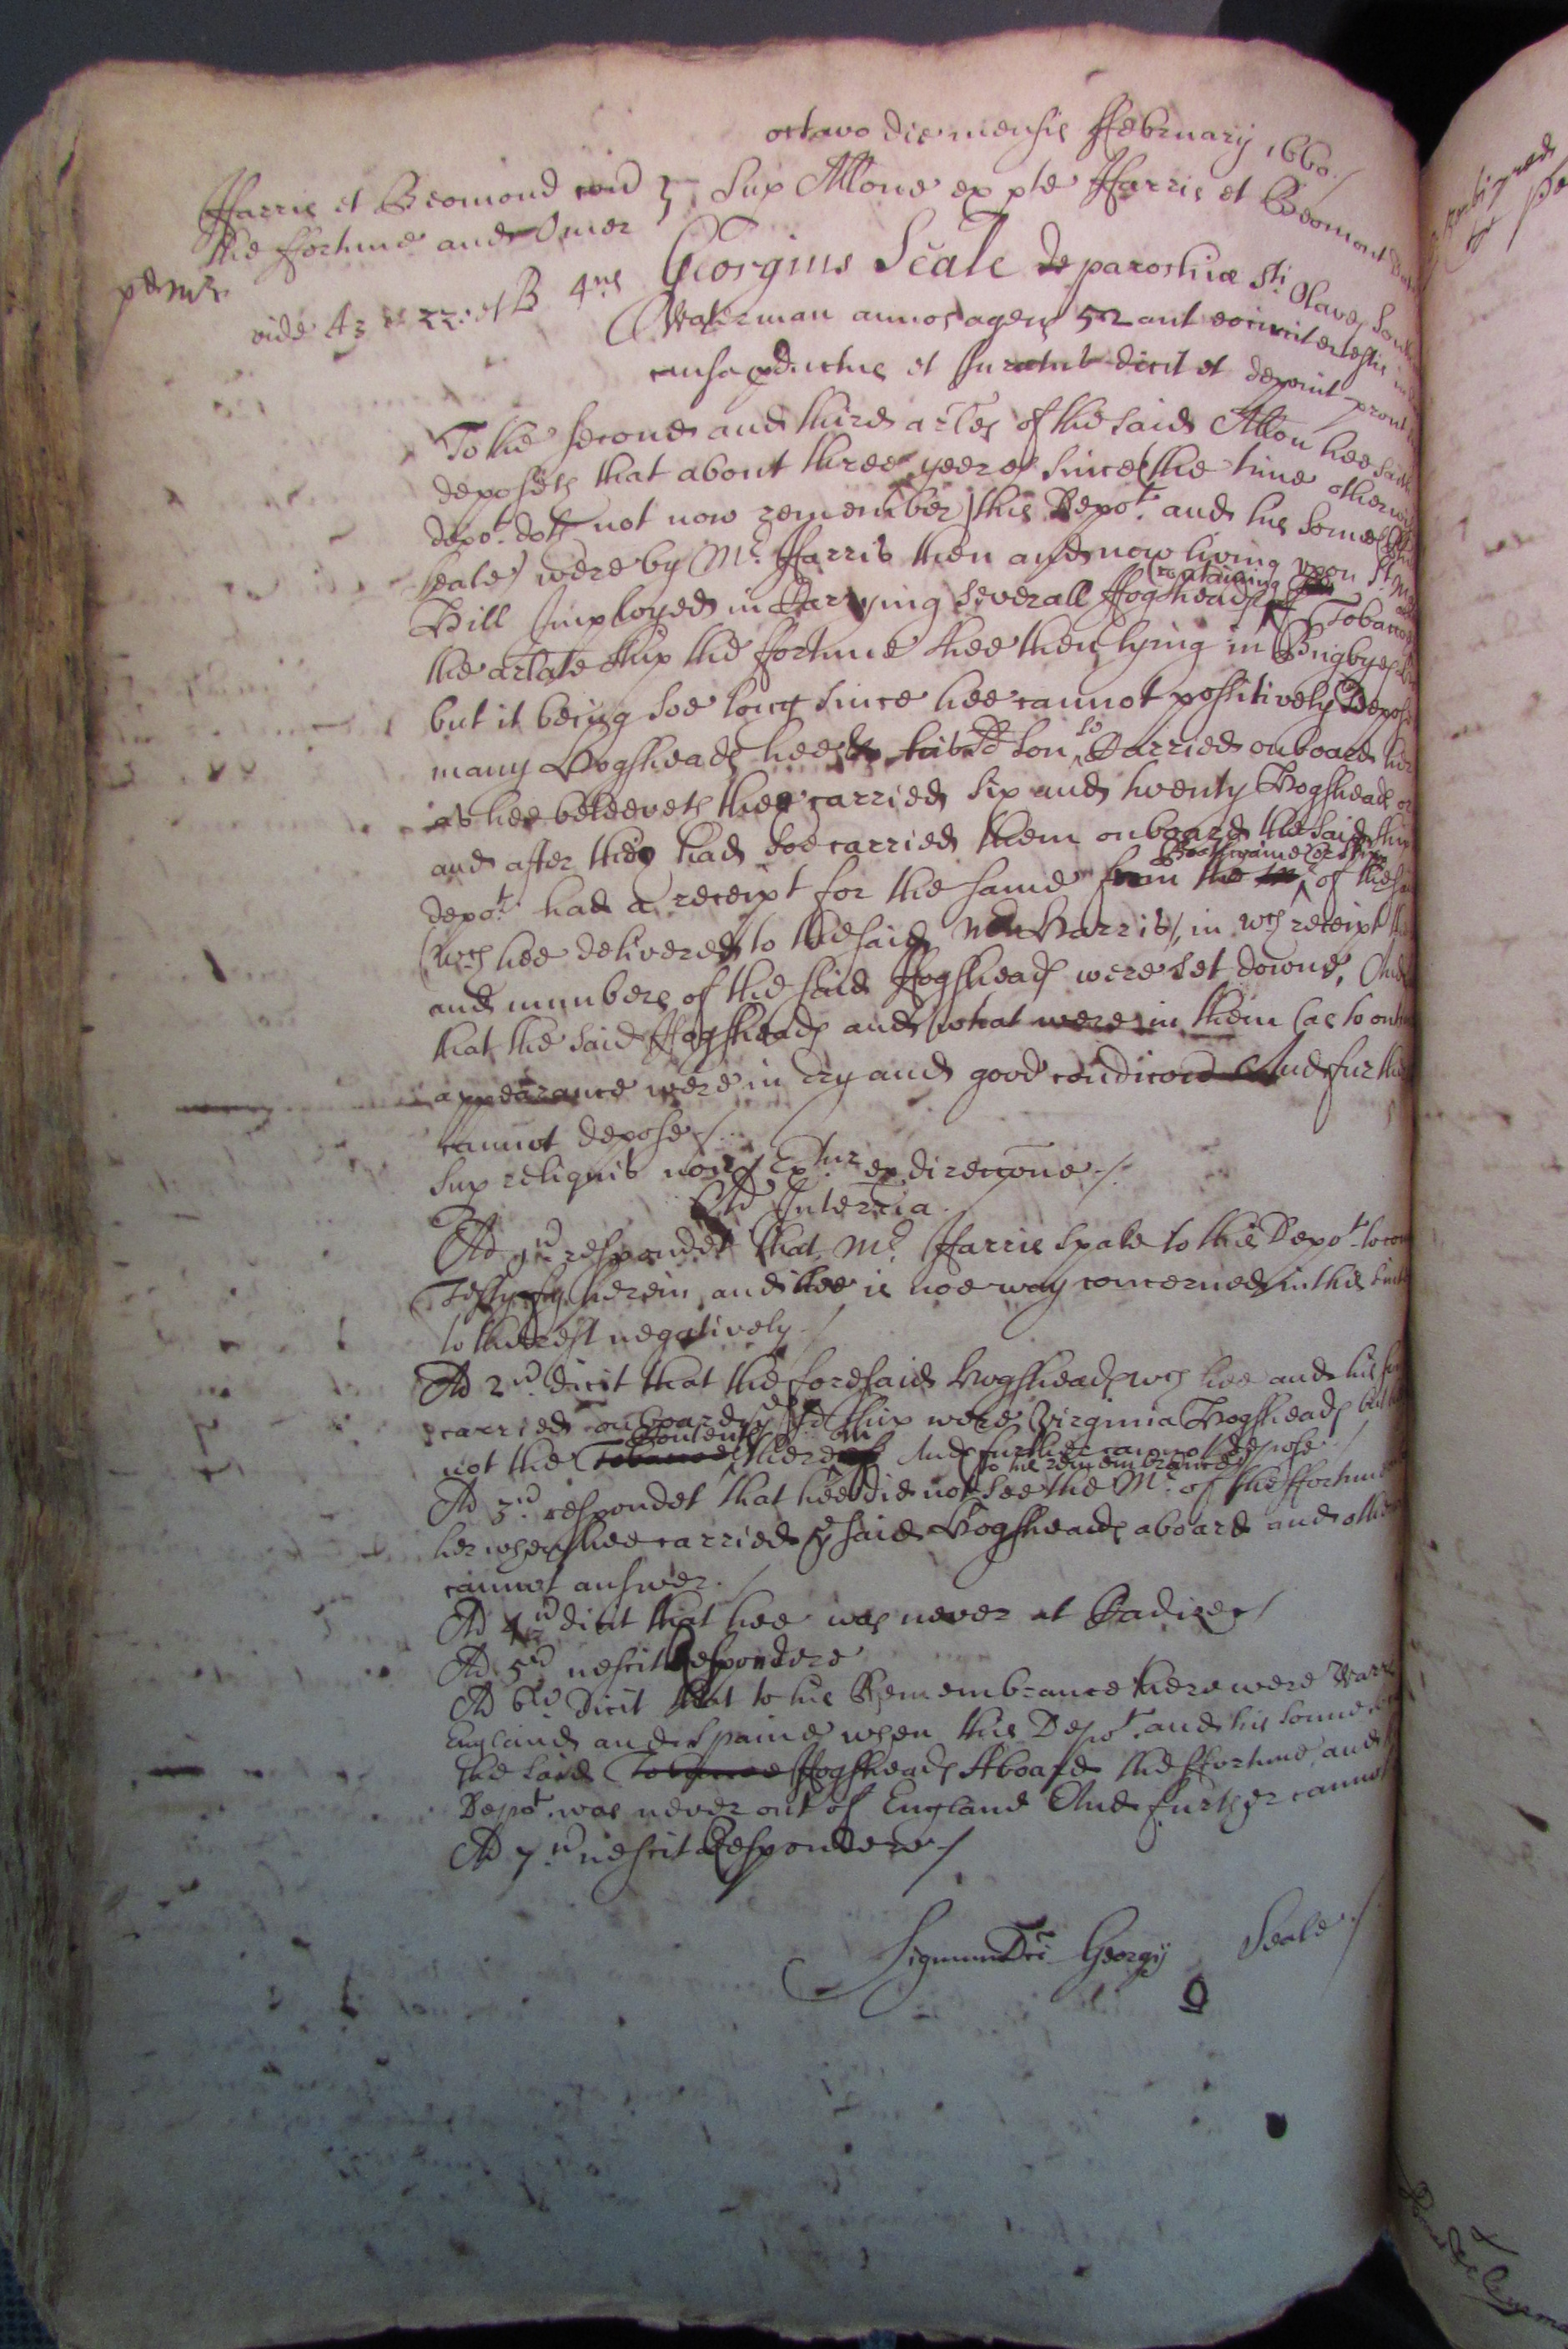 octavo die mensis ffebruary 1660./
Harris et Beomond con
the ffortune and Omer
Sup Allone ex pte Harris et Beomont
vide A3 et 22: et B 4us
Georgius Seale de parochiæ Sti Olaves
Waterman annos agens 52 aut eocirciter testis in
causa pductus et Juratus dicit et deponit prout
To the second and third arles of the said Allon hee saith
deposeth that about three yeeres since (the time otherwise
depot. doth not now remember) this Depot. and his sonne
Seale) were by Mr. Harris then and now living upon St. M
Hill Imployed in Carrying severall Hogsheads
containing
Tobaccoe
the arlate ship the ffortune shee then lying in
but it being soe long since hee cannot possitively Depose
many Hogsheads hee & his sd son so Carried onboard her
as hee beleeveth they carried six and twenty Hogsheads or
and after they had soe carried them onboard the said ship
Boatswaine or
depot. had a receipt for the same from the of the
(wch hee delivered to the said Mr Harris), in wch receipt the
and numbers of the said Hogsheads were set downe, And
that the said Hogsheads and what were in them (as to
appearance were in dry and good condicon And further
cannot depose./
Sup reliquis non Extur ex direccone./
Ad Interria.
Ad 1um respondet that Mr. Harris spake to this Depot. to
Testyfy herein, and hee is noe way concerned in this
to the rest negatively./
Ad 2um. dicit that the foresaid Hogsheads wch hee and his
carried onboard ye sd ship were Virginia Hogsheads but
Contents
not the Tobaccoe there And further cannot depose./
to his remembrance
Ad 3um. respondet that hee did not see the Mr. of the ffortune
her when hee carried ye said Hogsheads aboard and otherwise
cannot answer./
Ad 4um dicit that hee was never at Cadize./
Ad 5um nescit Respondere
Ad 6um Dicit that to his Remembrance there were Warre
England and Spaine when this Depot. and his sonne
the said Tobaccoe Hogsheads Aboard the ffortune, and
Depot. was never out of England And further cannot
Ad 7um nescit Respondere./
Signum Dci Georgij Seale./